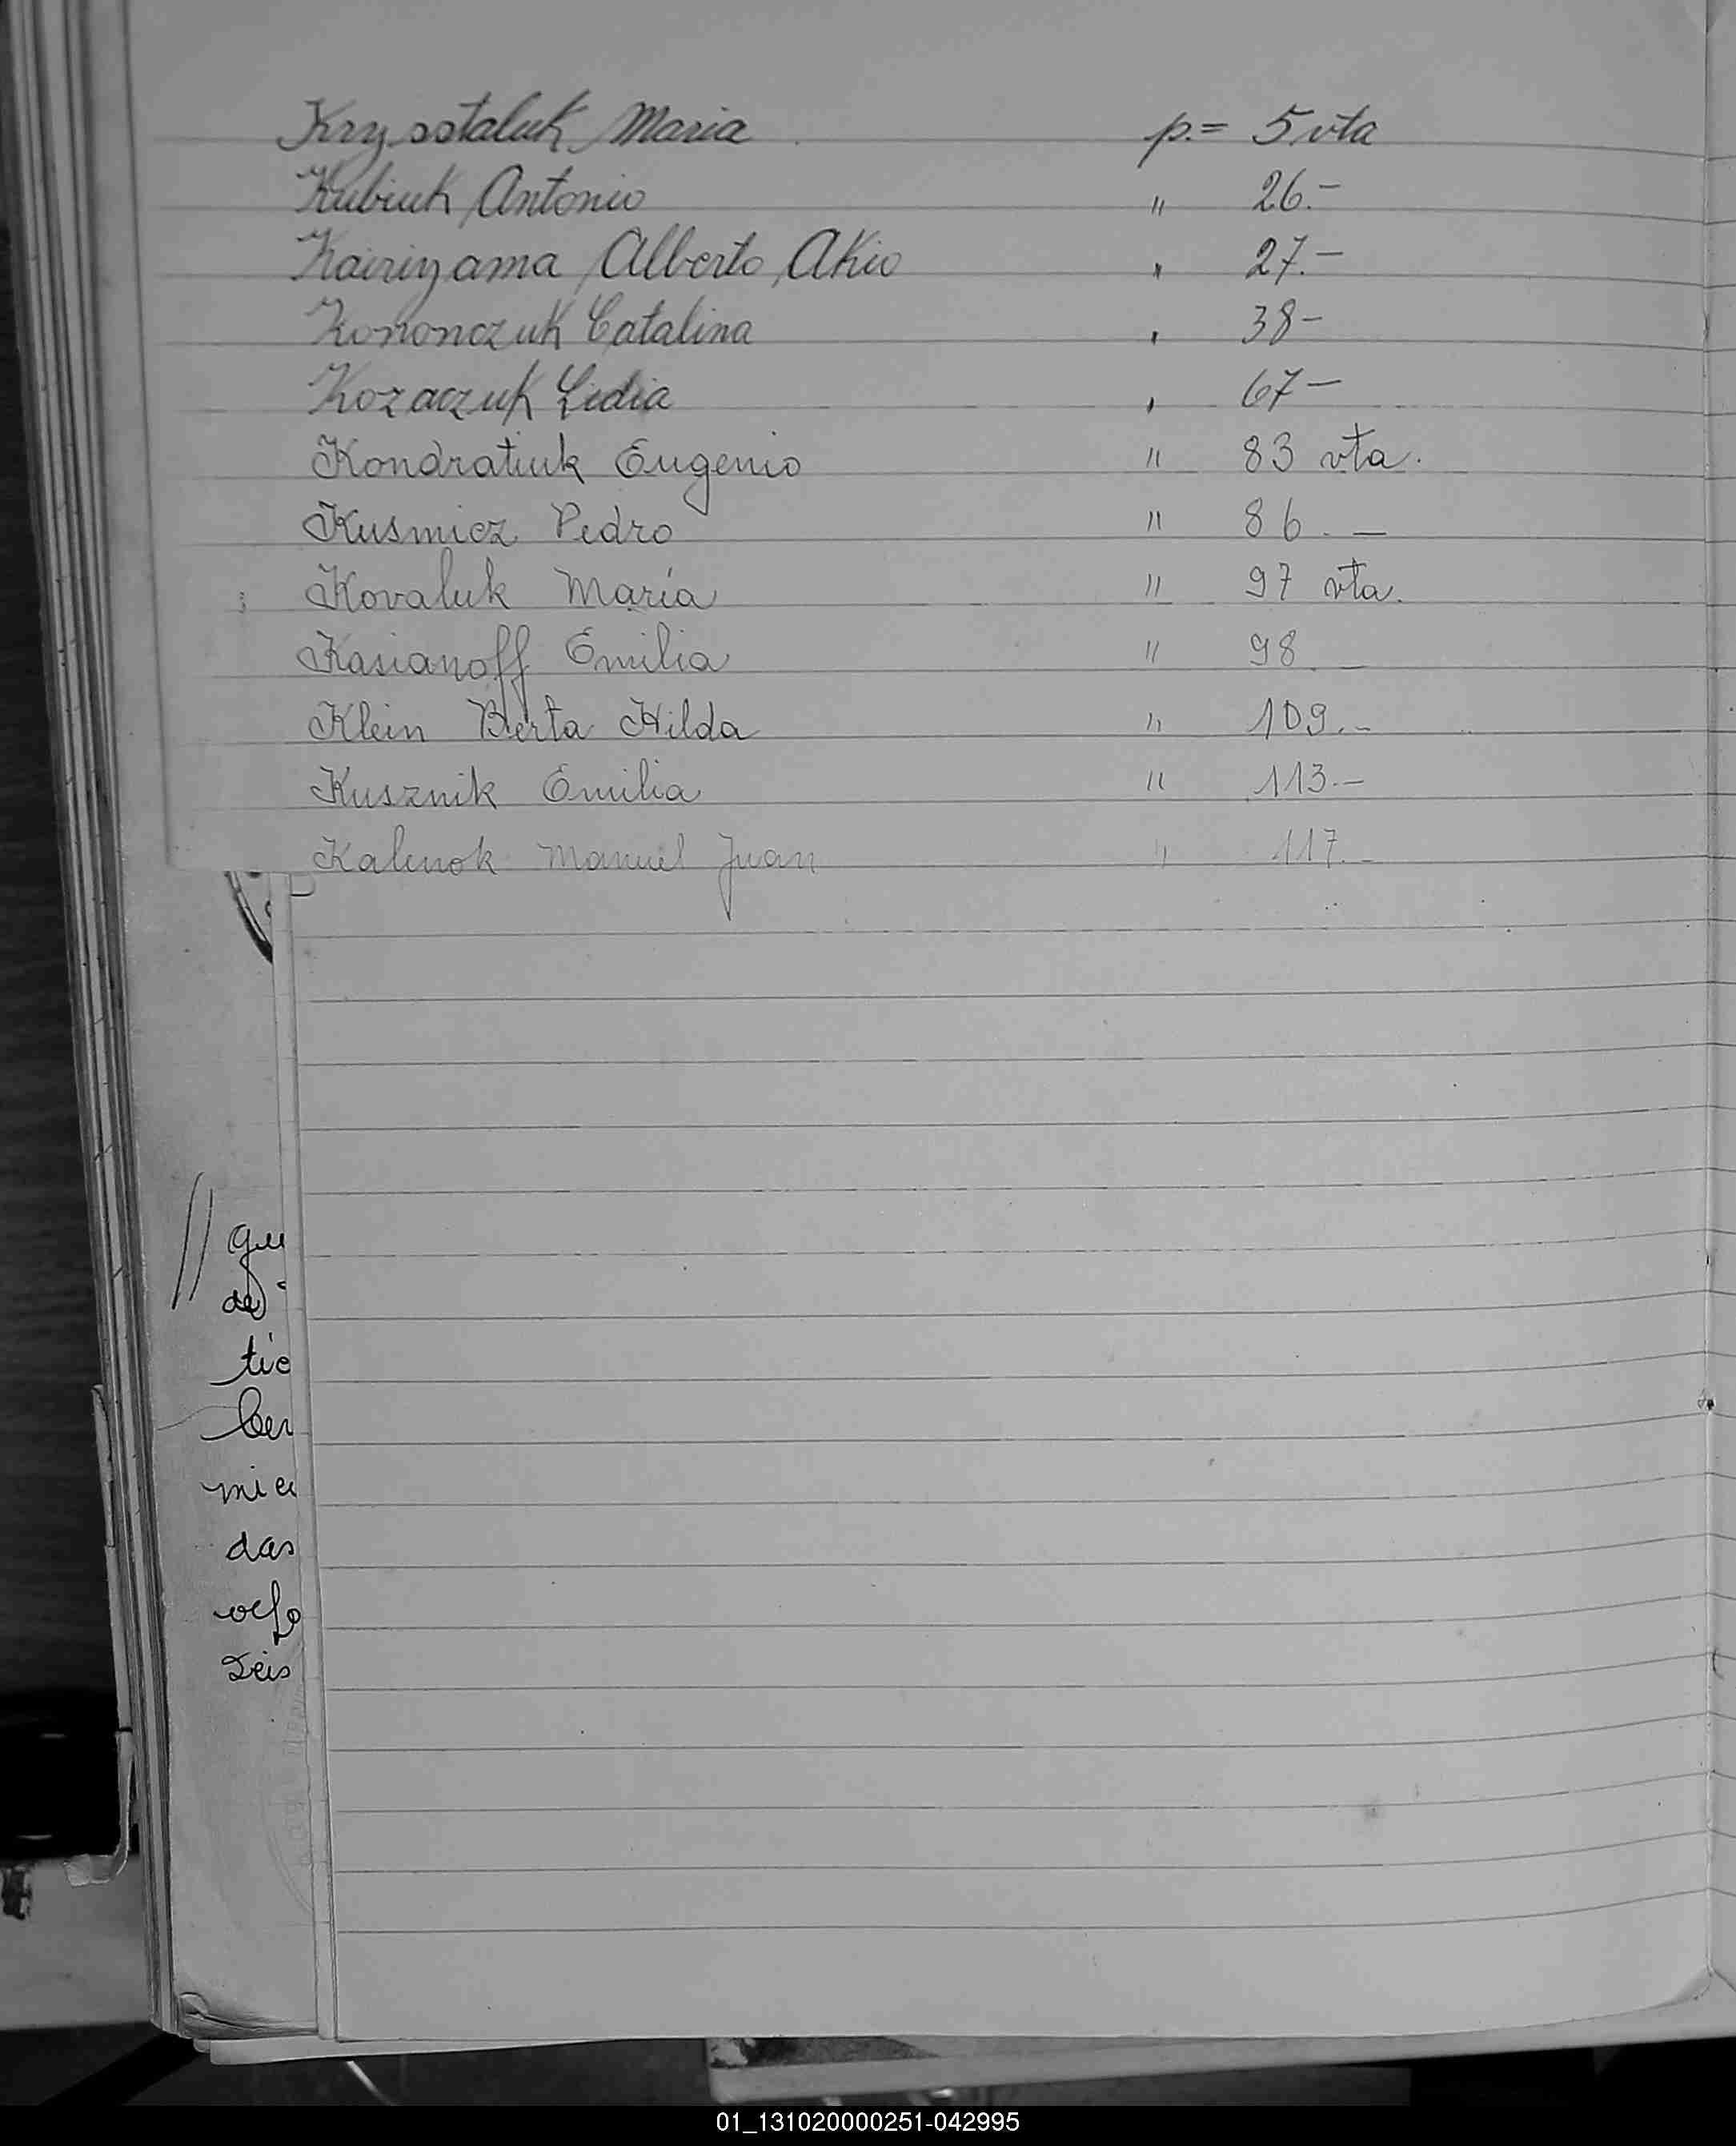 Krysstaluk Maria p.= 5 vta
Kubiuk Antonio " 26.-
Kairiyama Alberto Akio " 27.-
Kononczuk Catalina " 38-
Kozaczuk Lidia " 67-
Kondratiuk Eugenio " 83 vta.
Kusmicz Pedro " 86.-
Kovaluk María " 97 vta.
Kasianoff Emilia " 98.-
Klein Berta Hilda " 109.-
Kusznik Emilia " 113.-
Kalenok Manuel Juan " 117.-
// qu
de
tic
ber
mie
das
das
01_131020000251-042995